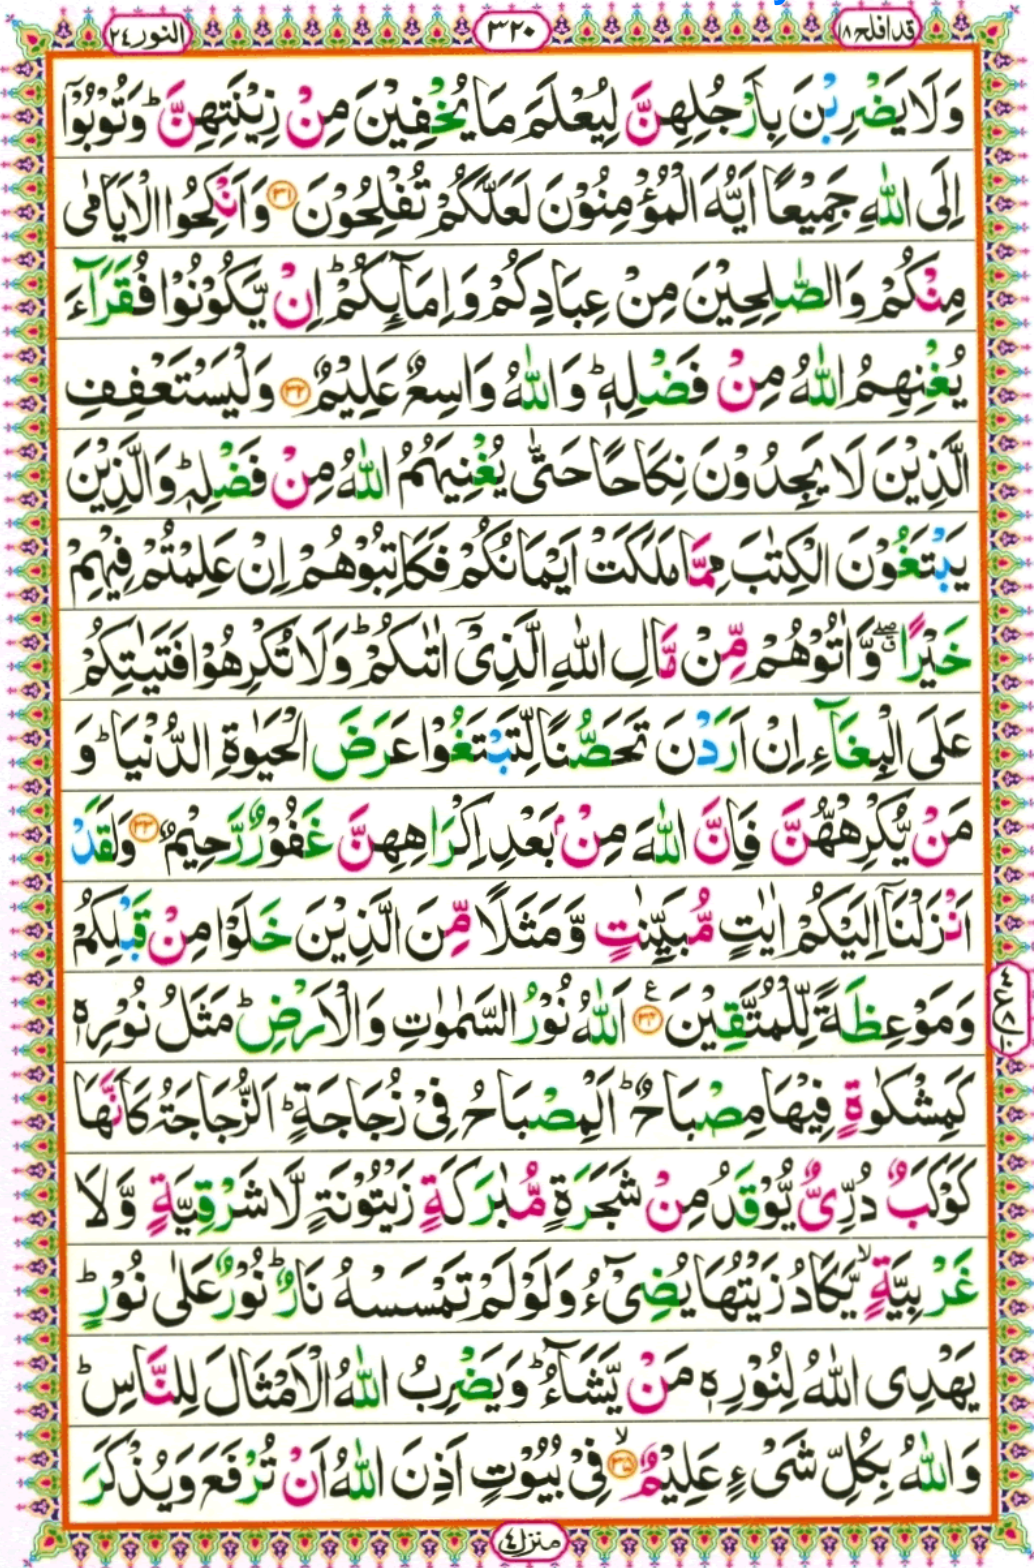 قد افلح ۱۸
۳۲۰
النور ۲۴
وَلَا يَضْرِبْنَ بِاَرْجُلِهِنَّ لِيُعْلَمَ مَا يُخْفِيْنَ مِنْ زِيْنَتِهِنَّ ؕ وَتُوْبُوْۤا
اِلَى اللّٰهِ جَمِيْعًا اَيُّهَ الْمُؤْمِنُوْنَ لَعَلَّكُمْ تُفْلِحُوْنَ ۳۱ وَاَنْكِحُوا الْاَيَامٰى
مِنْكُمْ وَالصّٰلِحِيْنَ مِنْ عِبَادِكُمْ وَاِمَآئِكُمْ ؕ اِنْ يَّكُوْنُوْا فُقَرَآءَ
يُغْنِهِمُ اللّٰهُ مِنْ فَضْلِهٖ ؕ وَاللّٰهُ وَاسِعٌ عَلِيْمٌ ۳۲ وَلْيَسْتَعْفِفِ
الَّذِيْنَ لَا يَجِدُوْنَ نِكَاحًا حَتّٰى يُغْنِيَهُمُ اللّٰهُ مِنْ فَضْلِهٖ ؕ وَالَّذِيْنَ
يَبْتَغُوْنَ الْكِتٰبَ مِمَّا مَلَكَتْ اَيْمَانُكُمْ فَكَاتِبُوْهُمْ اِنْ عَلِمْتُمْ فِيْهِمْ
خَيْرًا ۖق وَّاٰتُوْهُمْ مِّنْ مَّالِ اللّٰهِ الَّذِيْۤ اٰتٰىكُمْ ؕ وَلَا تُكْرِهُوْا فَتَيٰتِكُمْ
عَلَى الْبِغَآءِ اِنْ اَرَدْنَ تَحَصُّنًا لِّتَبْتَغُوْا عَرَضَ الْحَيٰوةِ الدُّنْيَا ؕ وَ
مَنْ يُّكْرِهْهُّنَّ فَاِنَّ اللّٰهَ مِنْۢ بَعْدِ اِكْرَاهِهِنَّ غَفُوْرٌ رَّحِيْمٌ ۳۳ وَلَقَدْ
اَنْزَلْنَاۤ اِلَيْكُمْ اٰيٰتٍ مُّبَيِّنٰتٍ وَّمَثَلًا مِّنَ الَّذِيْنَ خَلَوْا مِنْ قَبْلِكُمْ
وَمَوْعِظَةً لِّلْمُتَّقِيْنَ ۳۴ ع اَللّٰهُ نُوْرُ السَّمٰوٰتِ وَالْاَرْضِ ؕ مَثَلُ نُوْرِهٖ
كَمِشْكٰوةٍ فِيْهَا مِصْبَاحٌ ؕ اَلْمِصْبَاحُ فِيْ زُجَاجَةٍ ؕ اَلزُّجَاجَةُ كَاَنَّهَا
كَوْكَبٌ دُرِّيٌّ يُّوْقَدُ مِنْ شَجَرَةٍ مُّبٰرَكَةٍ زَيْتُوْنَةٍ لَّا شَرْقِيَّةٍ وَّلَا
غَرْبِيَّةٍ ۙ يَّكَادُ زَيْتُهَا يُضِيْٓءُ وَلَوْ لَمْ تَمْسَسْهُ نَارٌ ؕ نُوْرٌ عَلٰى نُوْرٍ ؕ
يَهْدِى اللّٰهُ لِنُوْرِهٖ مَنْ يَّشَآءُ ؕ وَيَضْرِبُ اللّٰهُ الْاَمْثَالَ لِلنَّاسِ ؕ
وَاللّٰهُ بِكُلِّ شَيْءٍ عَلِيْمٌ ۳۵ ۙ فِيْ بُيُوْتٍ اَذِنَ اللّٰهُ اَنْ تُرْفَعَ وَيُذْكَرَ
منزل ۴